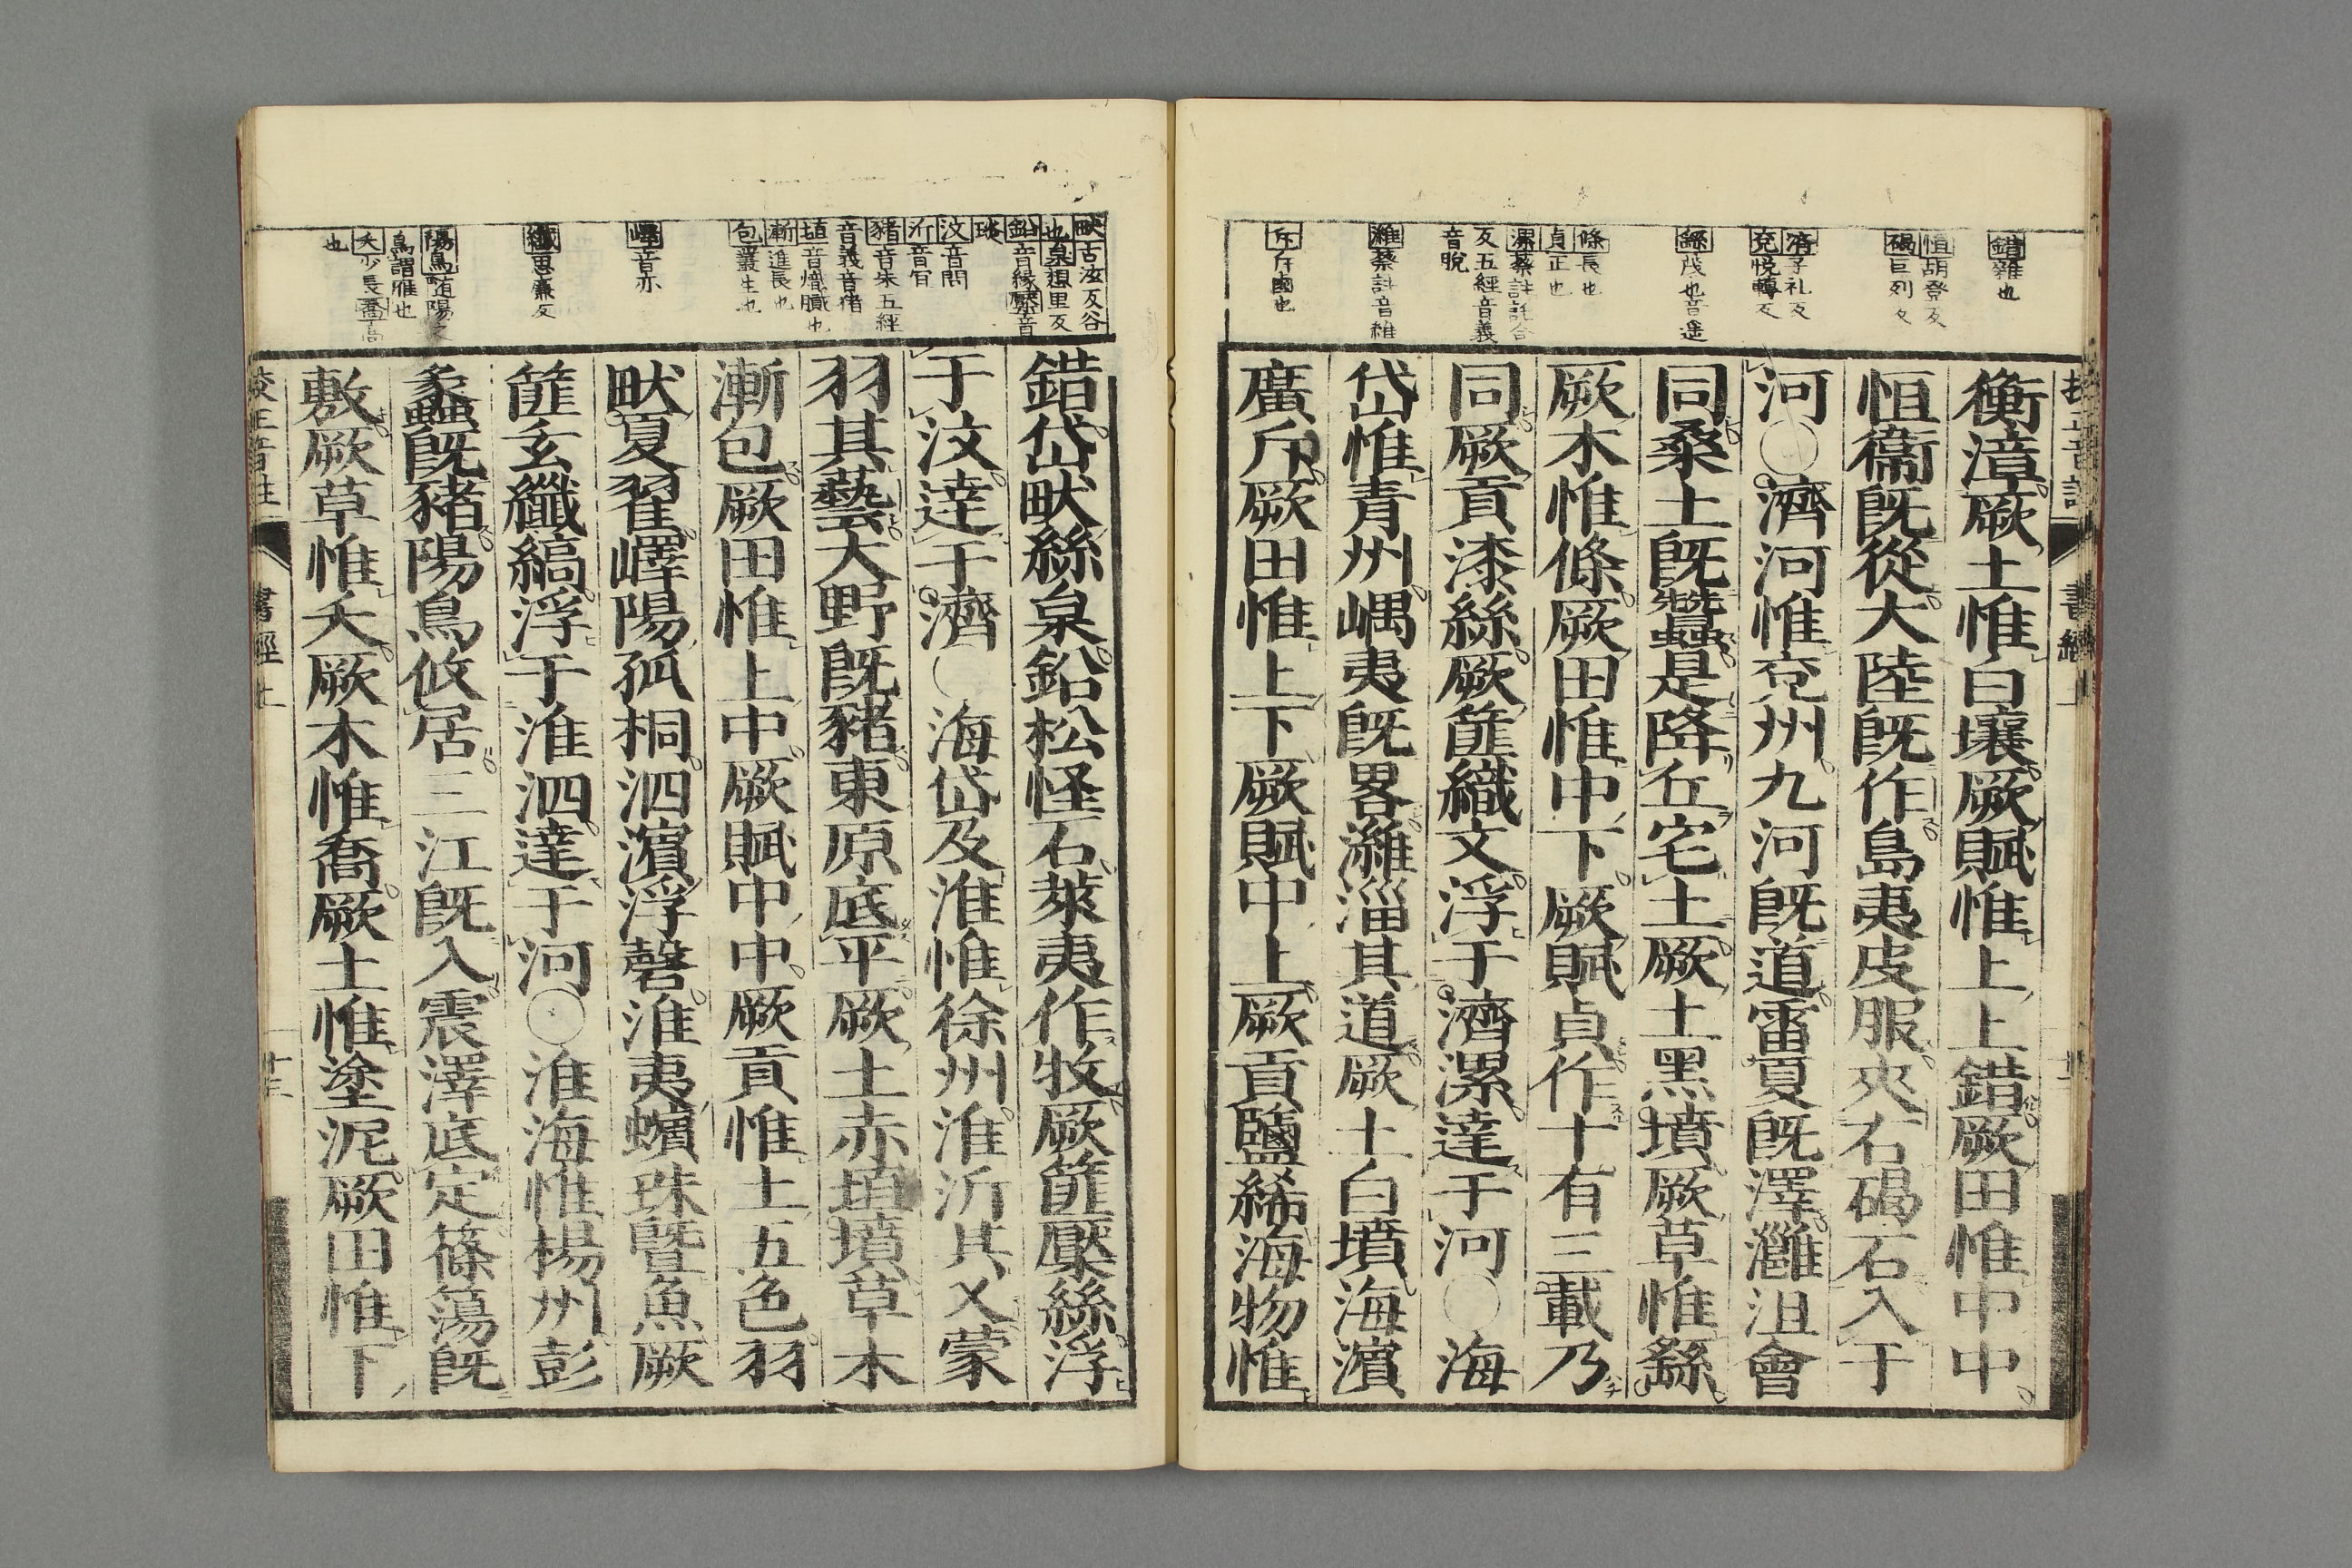 錯雜也
恒胡登反
碣巨列反
濟子礼反
兗悅轉反
繇茂也音遥
條長也
貞正也
漯蔡註託合
反五經音義
音脫
濰蔡註音維
斥斥鹵也
衡漳厥土惟白壤厥賦惟上上錯厥田惟中中
恒衞既從大陸既作島夷皮服夾右碣石入于
河○濟河惟兗州九河既道雷夏既澤灉沮會
同桑土既蠶是降丘宅土厥土黑墳厥草惟繇
厥木惟條厥田惟中下厥賦貞作十有三載乃
同厥貢漆絲厥篚織文浮于濟漯達于河○海
岱惟青州嵎夷既畧濰淄其道厥土白墳海濱
廣斥厥田惟上下厥賦中上厥貢鹽絺海物惟
畎古泫反谷
也枲想里反
鉛音緣檿音
琰
汶音問
沂音宜
豬音朱五經
音義音豬
埴音熾膱也
漸進長也
包叢生也
嶧音亦
纖思廉反
陽鳥隨陽之
鳥謂雁也
夭少長喬高
也
錯岱畎絲枲鉛松怪石萊夷作牧厥篚檿絲浮
于汶達于濟○海岱及淮惟徐州淮沂其乂蒙
羽其藝大野既豬東原底平厥土赤埴墳草木
漸包厥田惟上中厥賦中中厥貢惟土五色羽
畎夏翟嶧陽孤桐泗濱浮磬淮夷蠙珠曁魚厥
篚玄纖縞浮于淮泗達于河○淮海惟楊州彭
蠡既豬陽鳥攸居三江既入震澤底定篠簜既
敷厥草惟夭厥木惟喬厥土惟塗泥厥田惟下
校正音註 書經上 十三